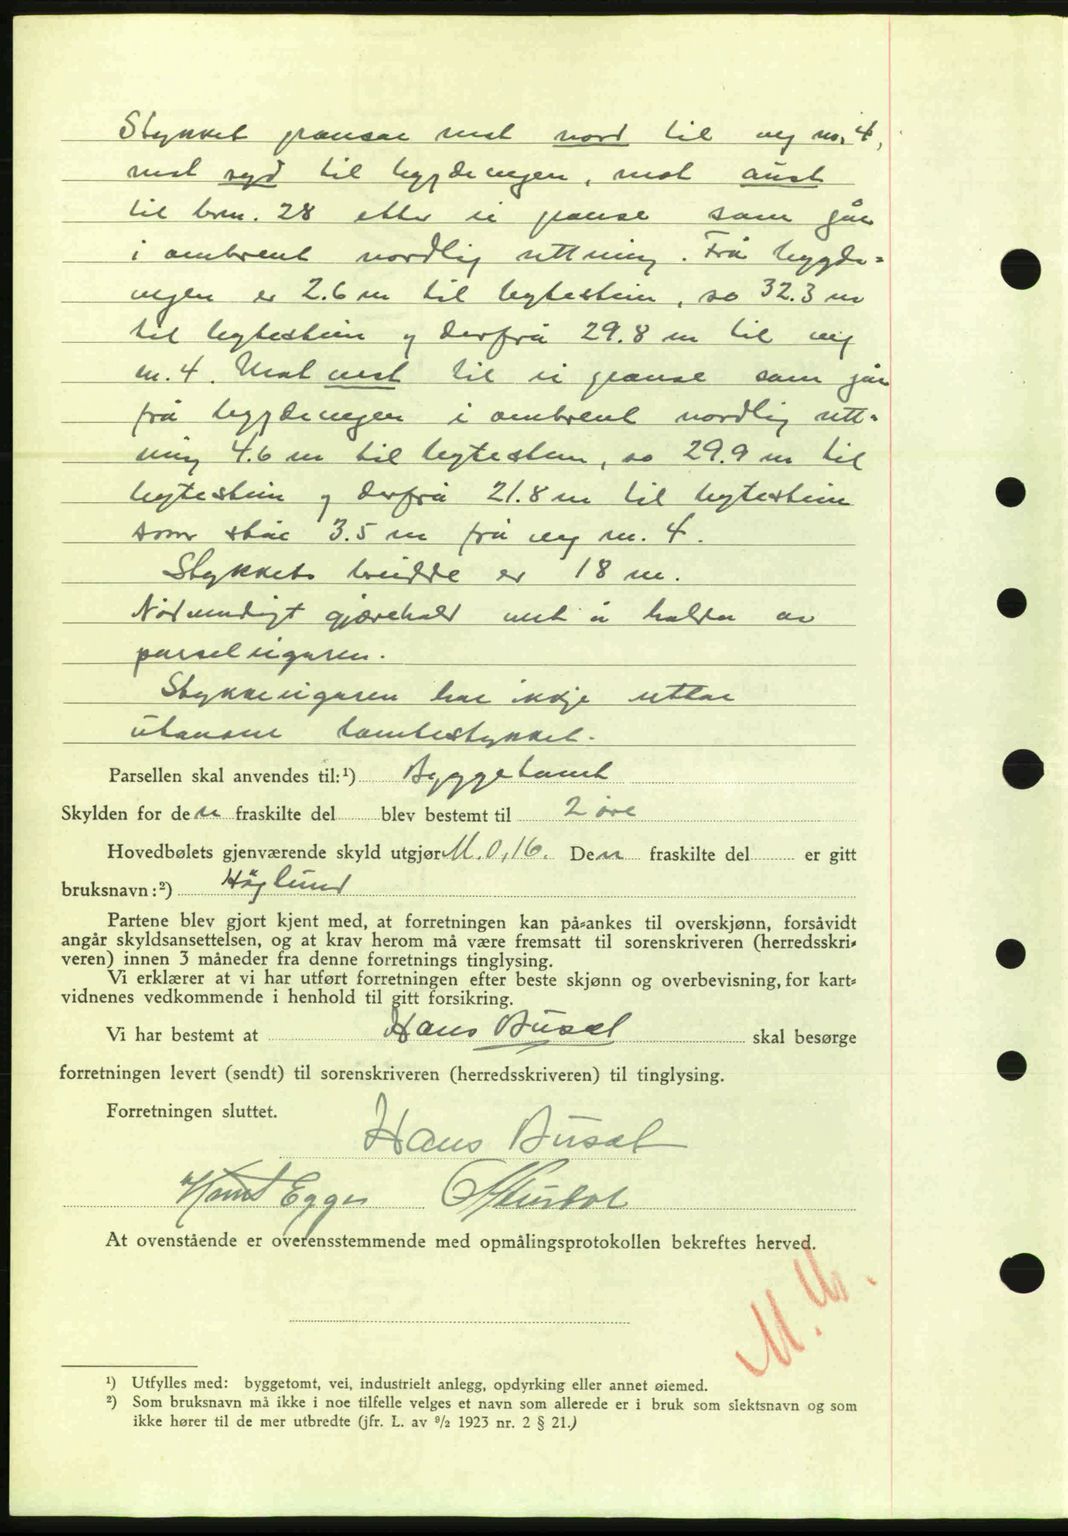 Stykket grensar mot nord til veg nr. 4,
mot syd til bygdevegen, mot aust
til brn. 28 etter ei grense som går
i ombrent nordlig rettning. Frå bygde=
vegen er 2.6 m til bytestein, so 32.3 m
til bytestein og derfrå 29.8 m til veg
nr. 4. Mot vest til ei grense som går
frå bygdevegen i ombrent nordlig rett=
ning 4.6 m til bytestein, so 29.9 m til
bytestein og derfrå 21.8 m til bytestein
som står 3.5 m frå veg nr. 4.
Stykkets breidde er 18 m.
Nödvendigt gjærehald vert å halda av
parseleigaren.
Stykkeeigaren har ikkje rettar
utanom tomtestykket.
Parsellen skal anvendes til:¹) Byggetomt
Skylden for den fraskilte del blev bestemt til 2 øre
Hovedbølets gjenværende skyld utgjør M. 0,16. Den fraskilte del er gitt
bruksnavn:²) Höglund
Partene blev gjort kjent med, at forretningen kan på=ankes til overskjønn, forsåvidt
angår skyldsansettelsen, og at krav herom må være fremsatt til sorenskriveren (herredsskri=
veren) innen 3 måneder fra denne forretnings tinglysing.
Vi erklærer at vi har utført forretningen efter beste skjønn og overbevisning, for kart=
vidnenes vedkommende i henhold til gitt forsikring.
Vi har bestemt at Hans Busæt skal besørge
forretningen levert (sendt) til sorenskriveren (herredsskriveren) til tinglysing.
Forretningen sluttet.
Hans Busæt
Knut Egge
At ovenstående er overensstemmende med opmålingsprotokollen bekreftes herved.
¹) Utfylles med: byggetomt, vei, industrielt anlegg, opdyrking eller annet øiemed.
²) Som bruksnavn må ikke i noe tilfelle velges et navn som allerede er i bruk som slektsnavn og som
ikke hører til de mer utbredte (jfr. L. av ⁹/₂ 1923 nr. 2 § 21.)